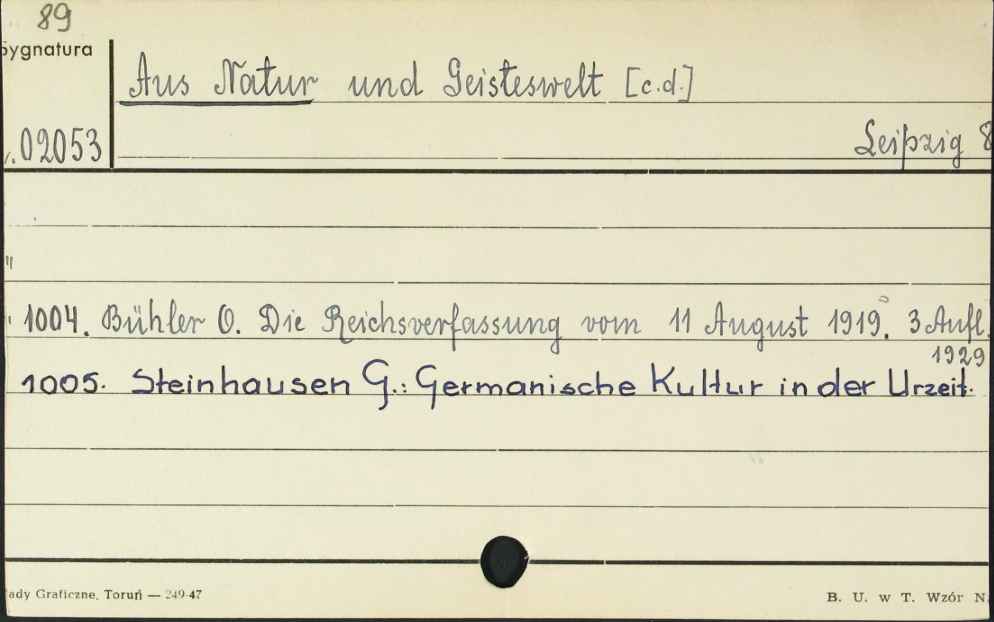 89
Sygnatura
Aus Natur und Geisteswelt [c.d.]
02053
Leipzig 8
"
" 1004. Bühler O. Die Reichsverfassung vom 11 August 1919. 3 Aufl.
1929
1005. Steinhausen G.: Germanische Kultur in der Urzeit.
ady Graficzne, Toruń — 249-47
B. U. w T. Wzór N